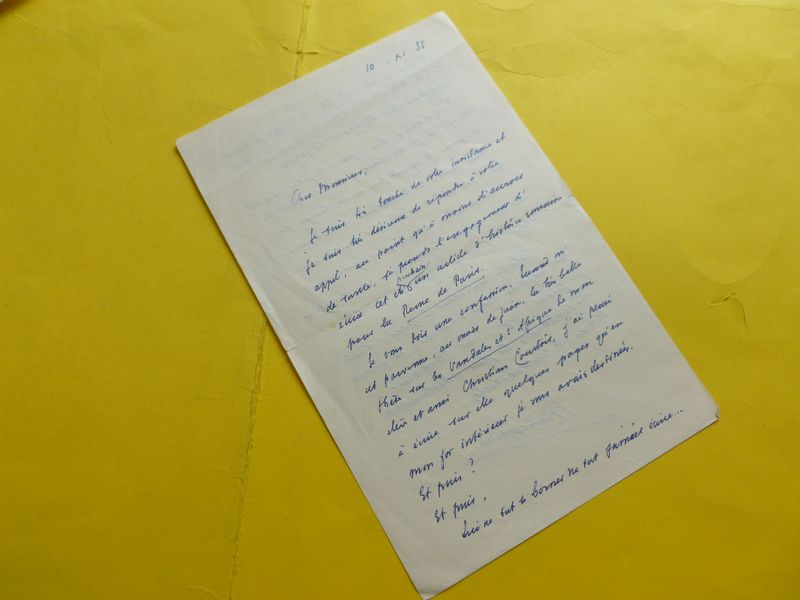 10 . XI . 55
Cher Monsieur,
Je suis très touché de votre insistance et
je suis très désireux de répondre à votre
appel, au point qu'à moins d'accroc
de santé, je prends l'engagement d'
écrire cet été prochain un article d'histoire romaine
pour la Revue de Paris.
Je vous dois une confession. Quand m'
est parvenue, au mois de juin, la très belle
thèse sur les Vandales et l'Afrique de mon
cher et ami Christian Courtois, j'ai pensé
à écrire sur elle quelques pages qu'en
mon for intérieur je vous avais destinées.
Et puis ?
Et puis,
ne tout écrire...